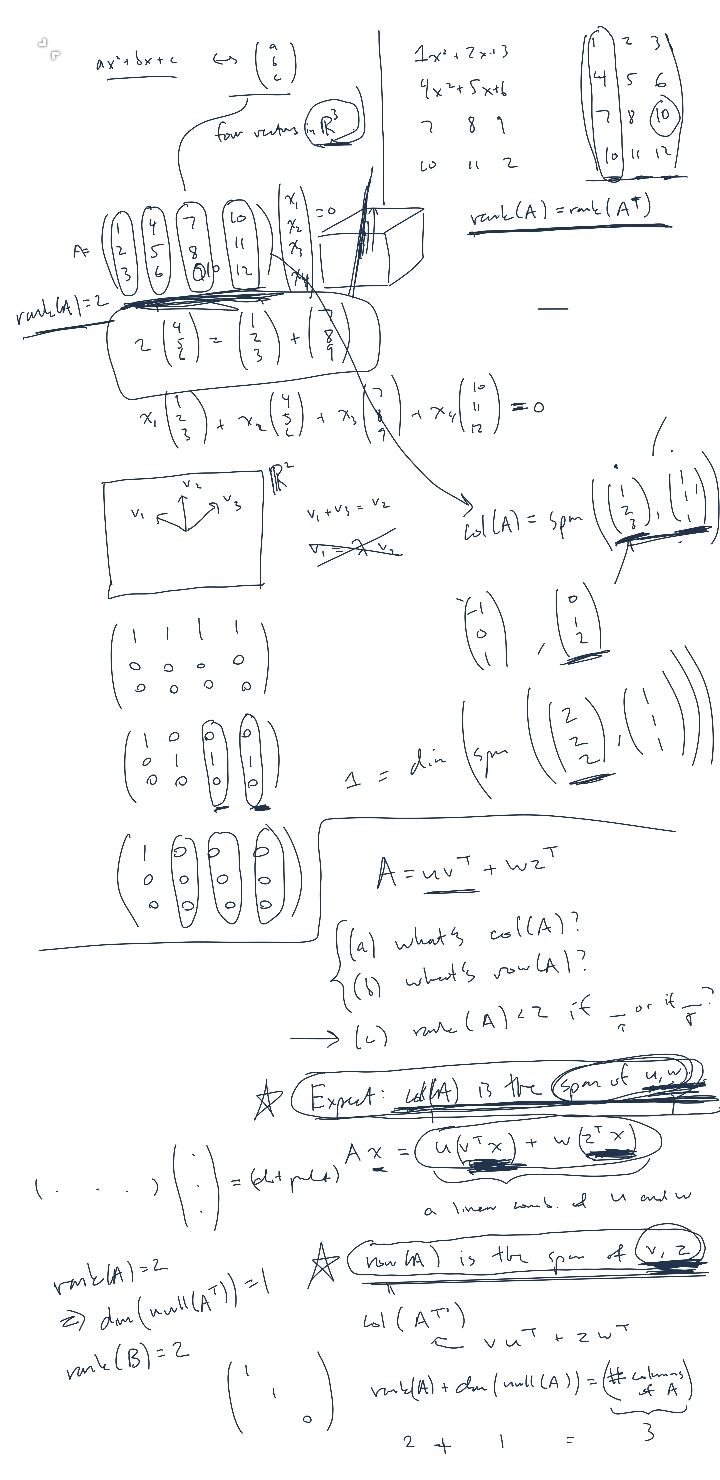 ax²+bx+c ↔ (a b c)
four vectors in ℝ³
1x²+2x+3
4x²+5x+6
7 8 9
10 11 2
1 2 3
4 5 6
7 8 10
10 11 12
rank(A) = rank(Aᵀ)
A = (1 4 7 10) (x₁) = 0
2 5 8 11 x₂
3 6 10 12 x₃
x₄
rank(A) = 2
2 (4 5 6) = (1 2 3) + (7 8 9)
x₁ (1 2 3) + x₂ (4 5 6) + x₃ (7 8 9) + x₄ (10 11 12) = 0
ℝ²
v₁ v₂ v₃
v₁ + v₃ = v₂
v₁ = λ v₂
col(A) = span ((1 2 3), (1 1 1))
(-1 0 1) , (0 1 2)
1 1 1 1
0 0 0 0
0 0 0 0
1 0 0 0
0 1 1 1
0 0 0 0
1 = dim (span ((2 2 2), (1 1 1)))
1 0 0 0
0 0 0 0
0 0 0 0
A = uvᵀ + wzᵀ
(a) what's col(A)?
(b) what's row(A)?
→ (c) rank(A) < 2 if _ or if _?
☆ Expect: col(A) is the span of u, w
A x = u(vᵀx) + w(zᵀx)
( . . . ) ( . . . ) = (dot prod)
a linear comb. of u and w
☆ row(A) is the span of v, z
col(Aᵀ)
← vuᵀ + zwᵀ
rank(A) = 2
⇒ dim(null(Aᵀ)) = 1
rank(B) = 2
(1 1 0)
rank(A) + dim(null(A)) = (# columns of A)
2 + 1 = 3